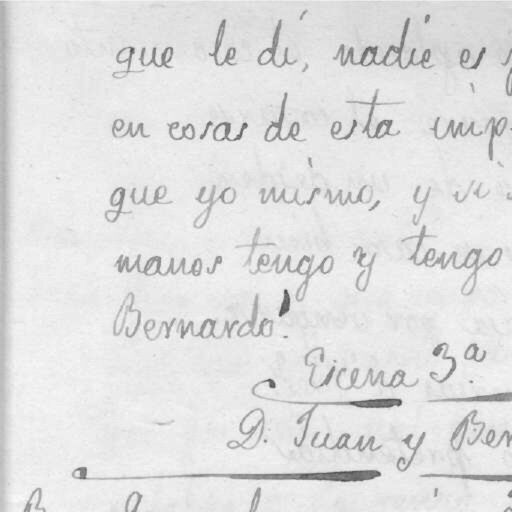 que le dí, nadie es
en cosas de esta imp
que yo mismo, y si
manos tengo y tengo
Bernardo!
Escena 3ª.
D. Juan y Ber